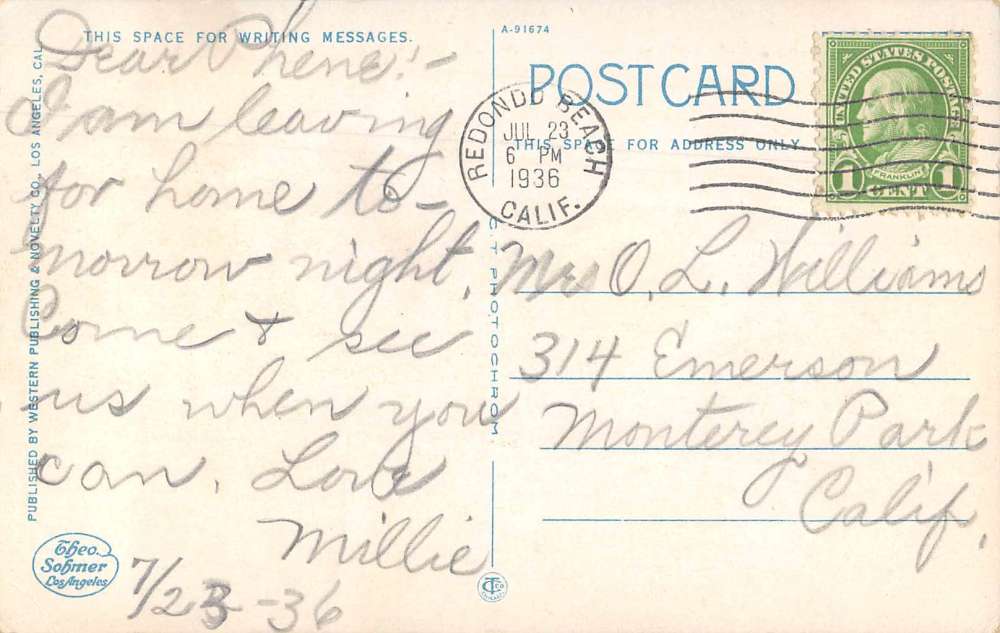 THIS SPACE FOR WRITING MESSAGES.
Dear Phene:-
I am leaving
for home to-
morrow night.
Come & see
us when you
can. Love
Millie
7/23-36
PUBLISHED BY WESTERN PUBLISHING & NOVELTY CO., LOS ANGELES, CAL.
Theo.
Sohmer
Los Angeles
C.T. PHOTOCHROM
A-91674
POST CARD
THIS SPACE FOR ADDRESS ONLY
REDONDO BEACH
JUL 23
6 PM
1936
CALIF.
UNITED STATES POSTAGE
FRANKLIN
1 CENT 1
Mrs O. L. Williams
314 Emerson
Monterey Park
Calif.